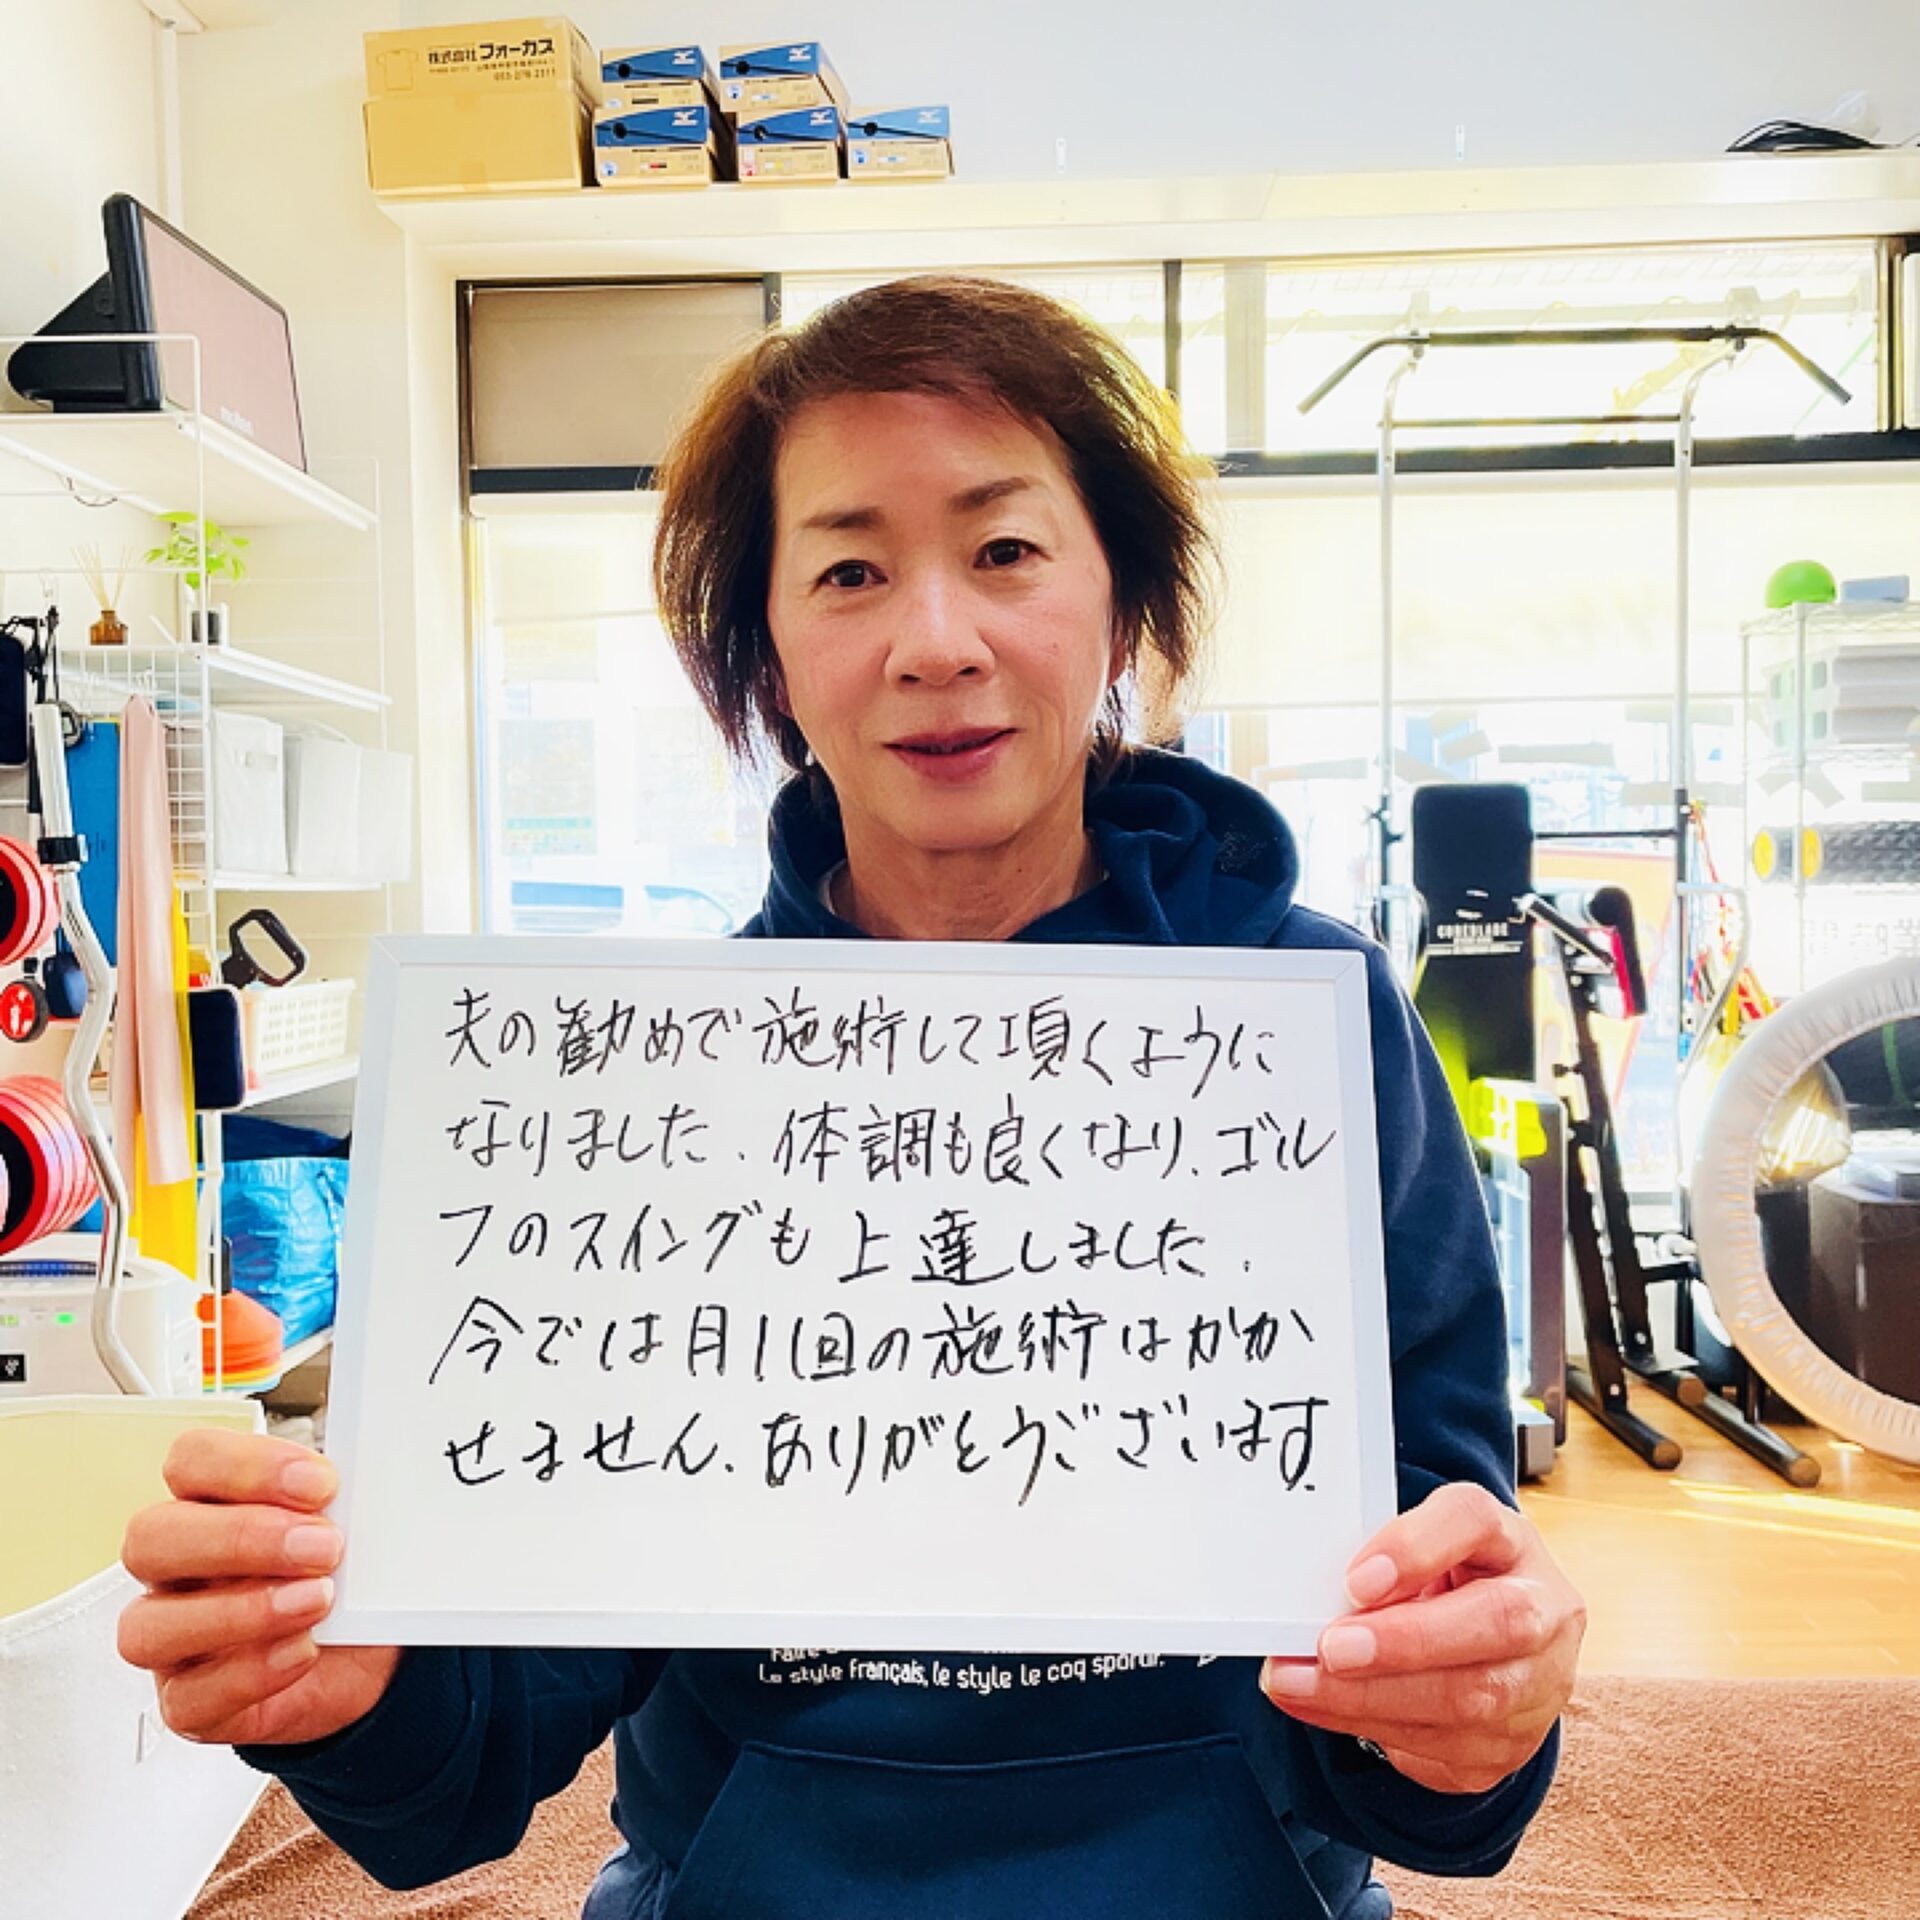 株式会社フォーカス
055-276-2311
molten
夫の勧めで施術して頂くように
なりました、体調も良くなり、ゴル
フのスイングも上達しました、
今では月1回の施術はかか
せません、ありがとうございます。
COREBLADE
Le style français, le style le coq sportif.